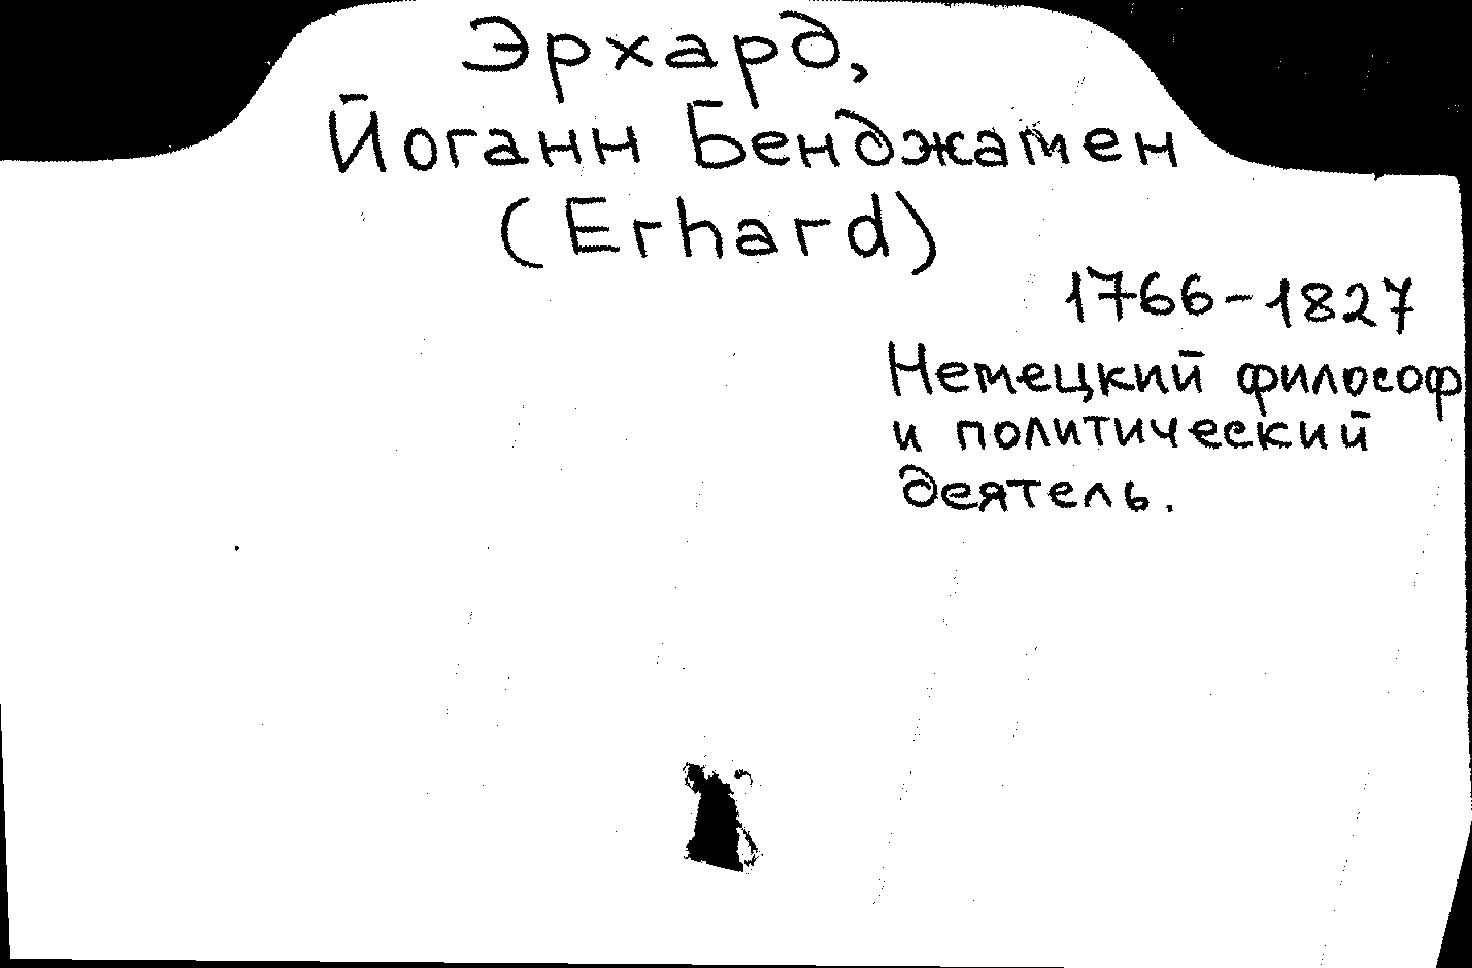 Эрхард,
Йоганн Бенджамен
(Erhard)
1766-1827
Немецкий философ
и политический
деятель.